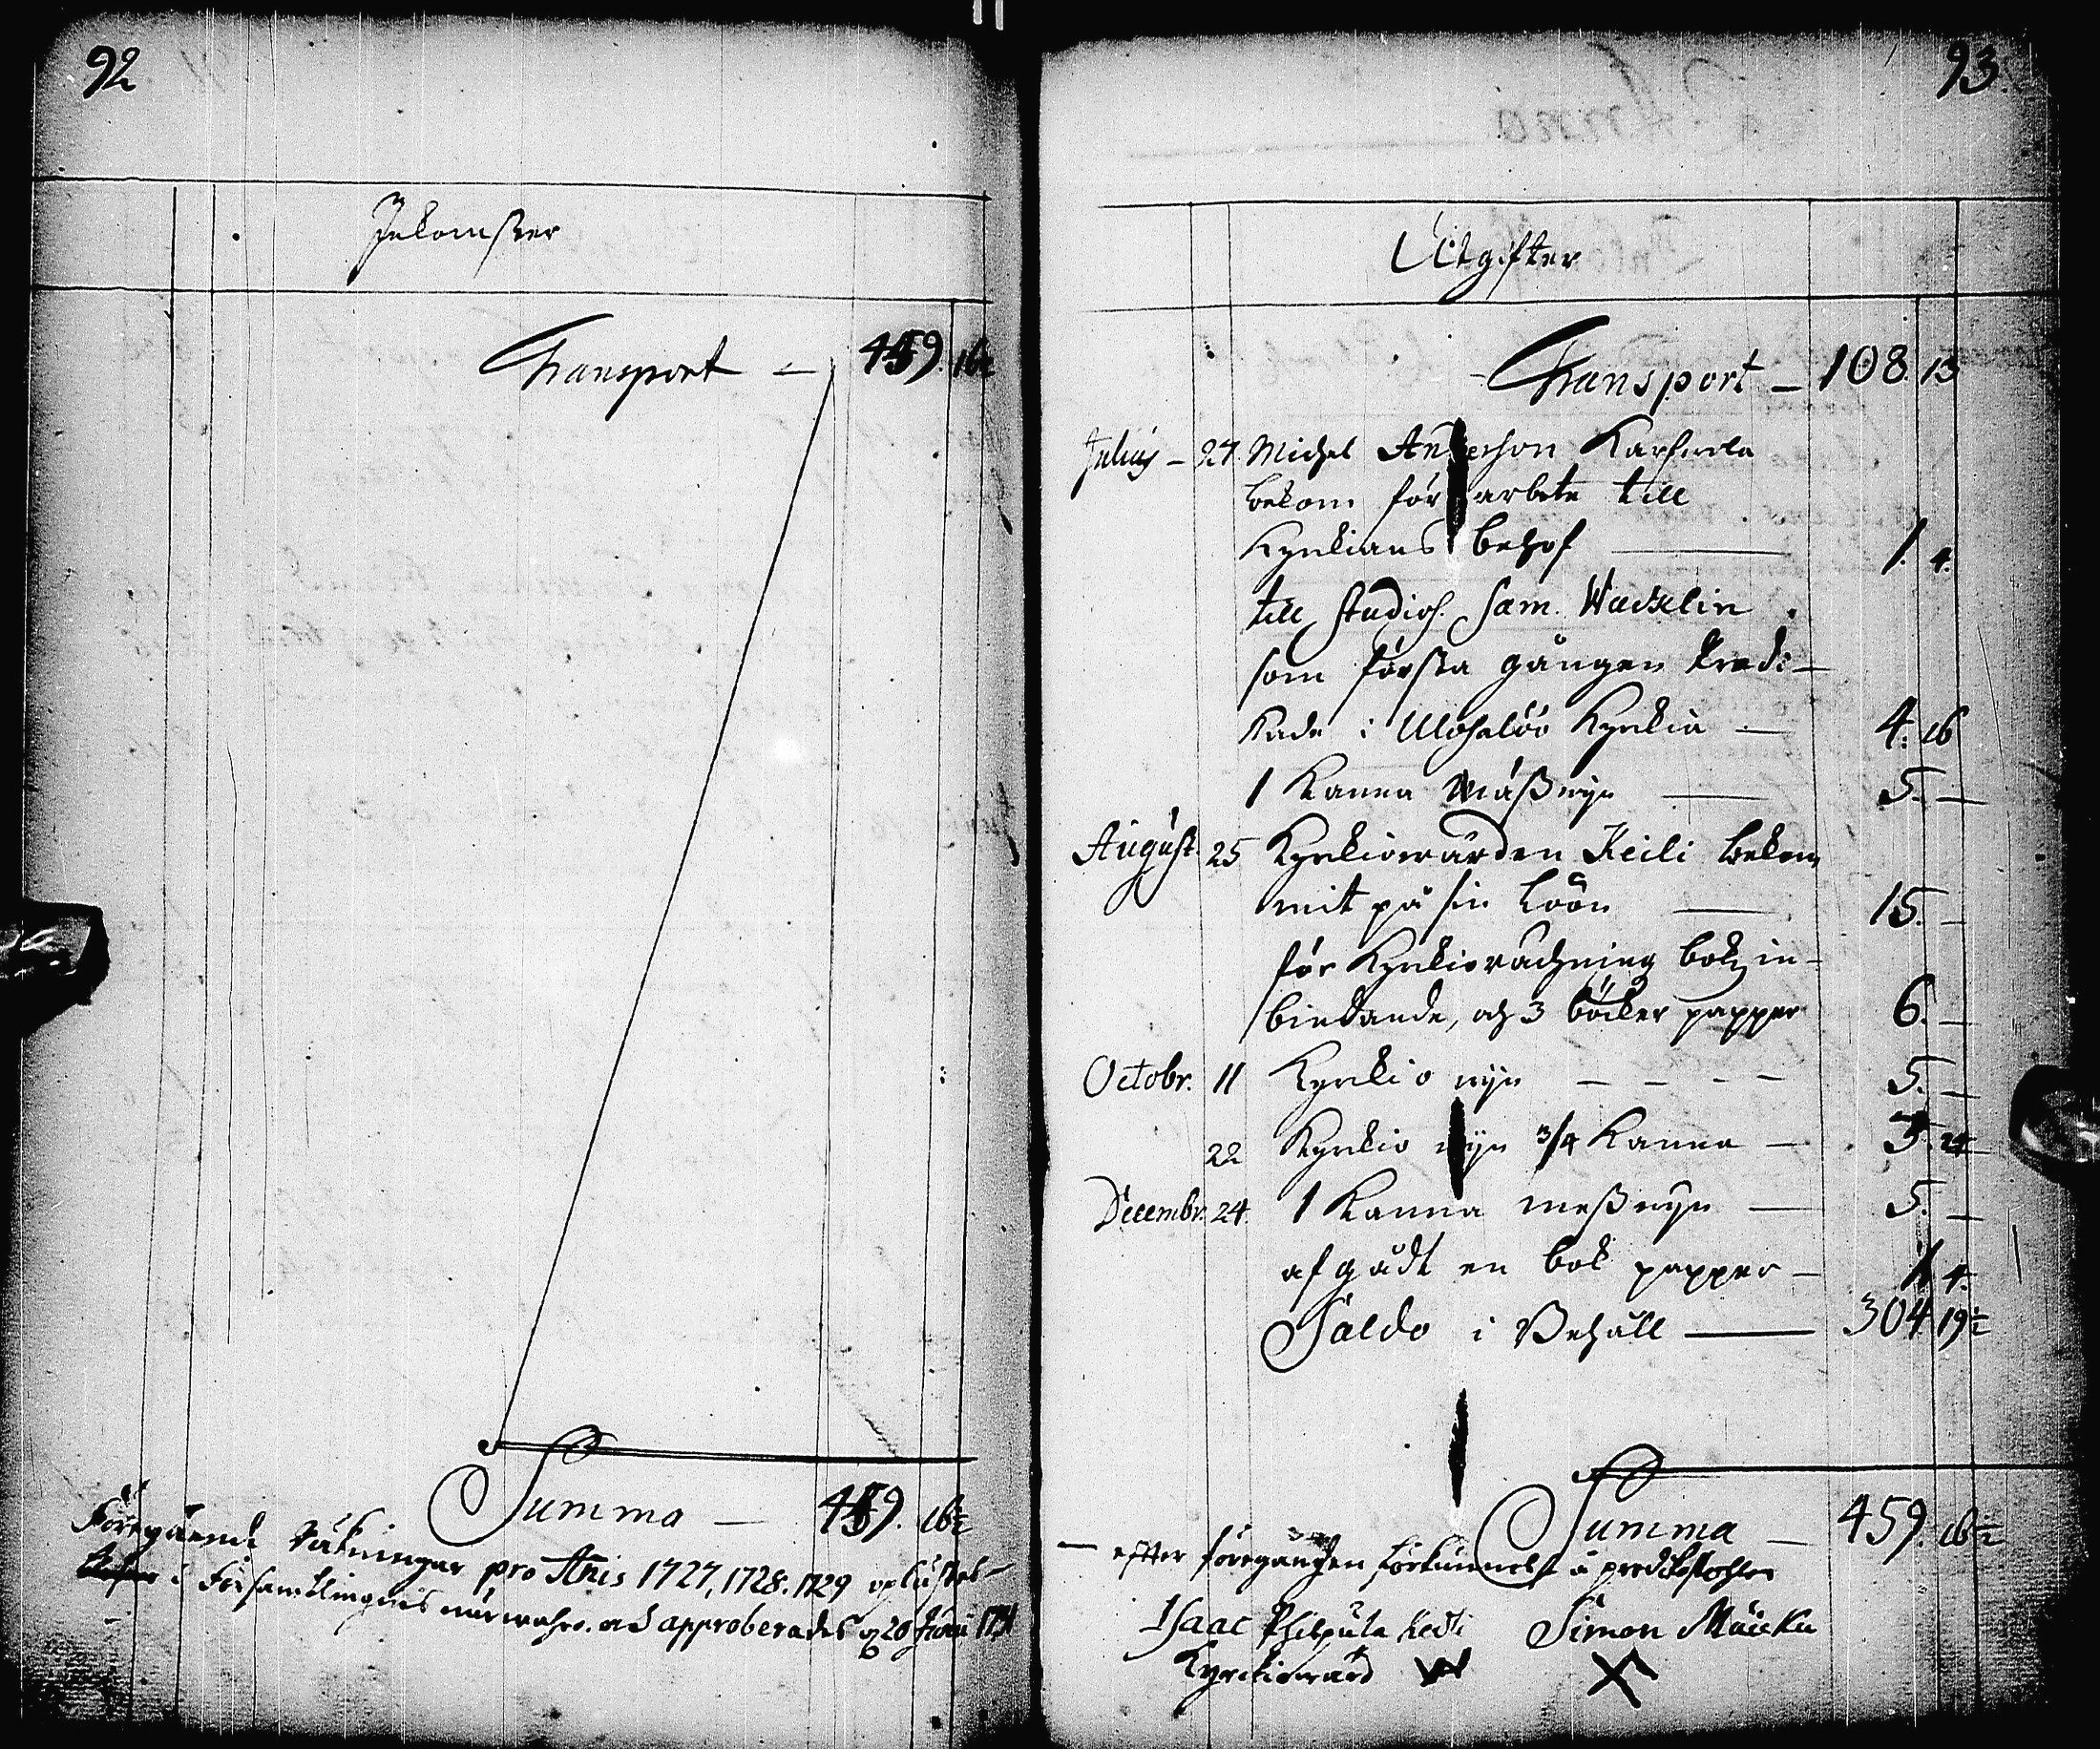 92
Inkomster
Transport — 459. 16½
Summa — 459. 16½
Föregående Räkningar pro Anis 1727, 1728. 1729 oplästes
i Församblingens närwahro. och approberades d 20 Juni 1731
93.
Utgifter
Transport — 108. 13
Julius — 27. Michel Anderson
bekom för arbete till
Kyrkians behof — 1. 4.
till Studios. Sam. Wacklin
som första gången predi-
kade i Ulohalöö Kyrkia — 4. 16
1 Kanna Mäßwijn — 5. —
August 25 Kyrkiowärden Keili bekom
mit på sin Löön — 15. —
för Kyrkiorächning bokz in-
bindande, och 3 böcker papper 6. —
Octobr. 11 Kyrkio wijn — — — — 5. —
22 Kyrkio wijn 3/4 Kanna — 3. 24
Decembr. 24. 1 Kanna meßwijn — 5. —
afgådt en bok papper — 1. 4.
Saldo i Behåll — 304 19½
Summa — 459. 16½
efter föregången på predikstohlen
Isaac Philpula Simon
Kyrkiowärd